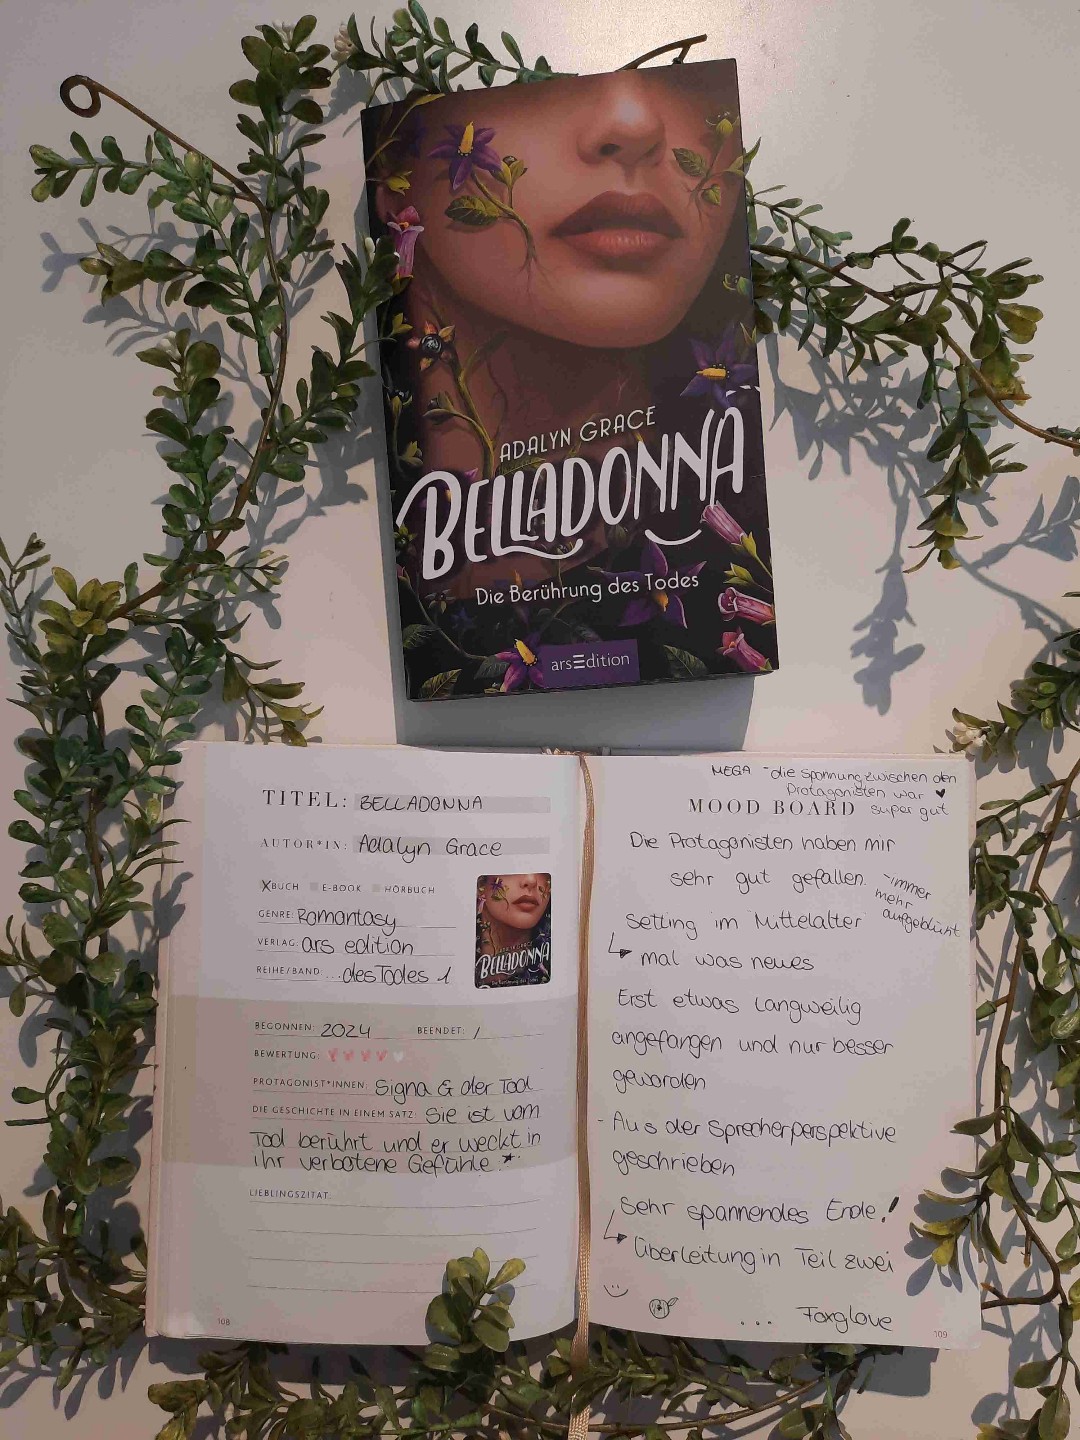 ADALYN GRACE
BELLADONNA
Die Berührung des Todes
arsEdition
TITEL: BELLADONNA
AUTOR*IN: Adalyn Grace
X BUCH E-BOOK HÖRBUCH
GENRE: Romantasy
VERLAG: ars edition
REIHE/BAND ...des Todes 1
ADALYN GRACE
BELLADONNA
Die Berührung des Todes
BEGONNEN: 2024 BEENDET: /
BEWERTUNG:
PROTAGONIST*INNEN: Signa & der Tod
DIE GESCHICHTE IN EINEM SATZ: Sie ist vom
Tod berührt und er weckt in
ihr verbotene Gefühle.
LIEBLINGSZITAT:
108
MEGA - die Spannung zwischen den
Protagonisten war ♥
MOOD BOARD super gut
Die Protagonisten haben mir
sehr gut gefallen. - immer
mehr
aufgeblüht
Setting im Mittelalter
↳ mal was neues
Erst etwas langweilig
angefangen und nur besser
geworden
- Aus der Sprecherperspektive
geschrieben
Sehr spannendes Ende!
↳ Überleitung in Teil zwei
... Foxglove
109